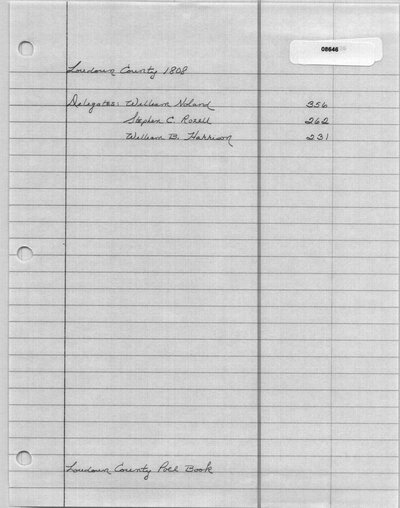 08646
Loudoun County 1808
Delegates: William Noland 356
Stephen C. Rozell 262
William B. Harrison 231
Loudoun County Poll Book